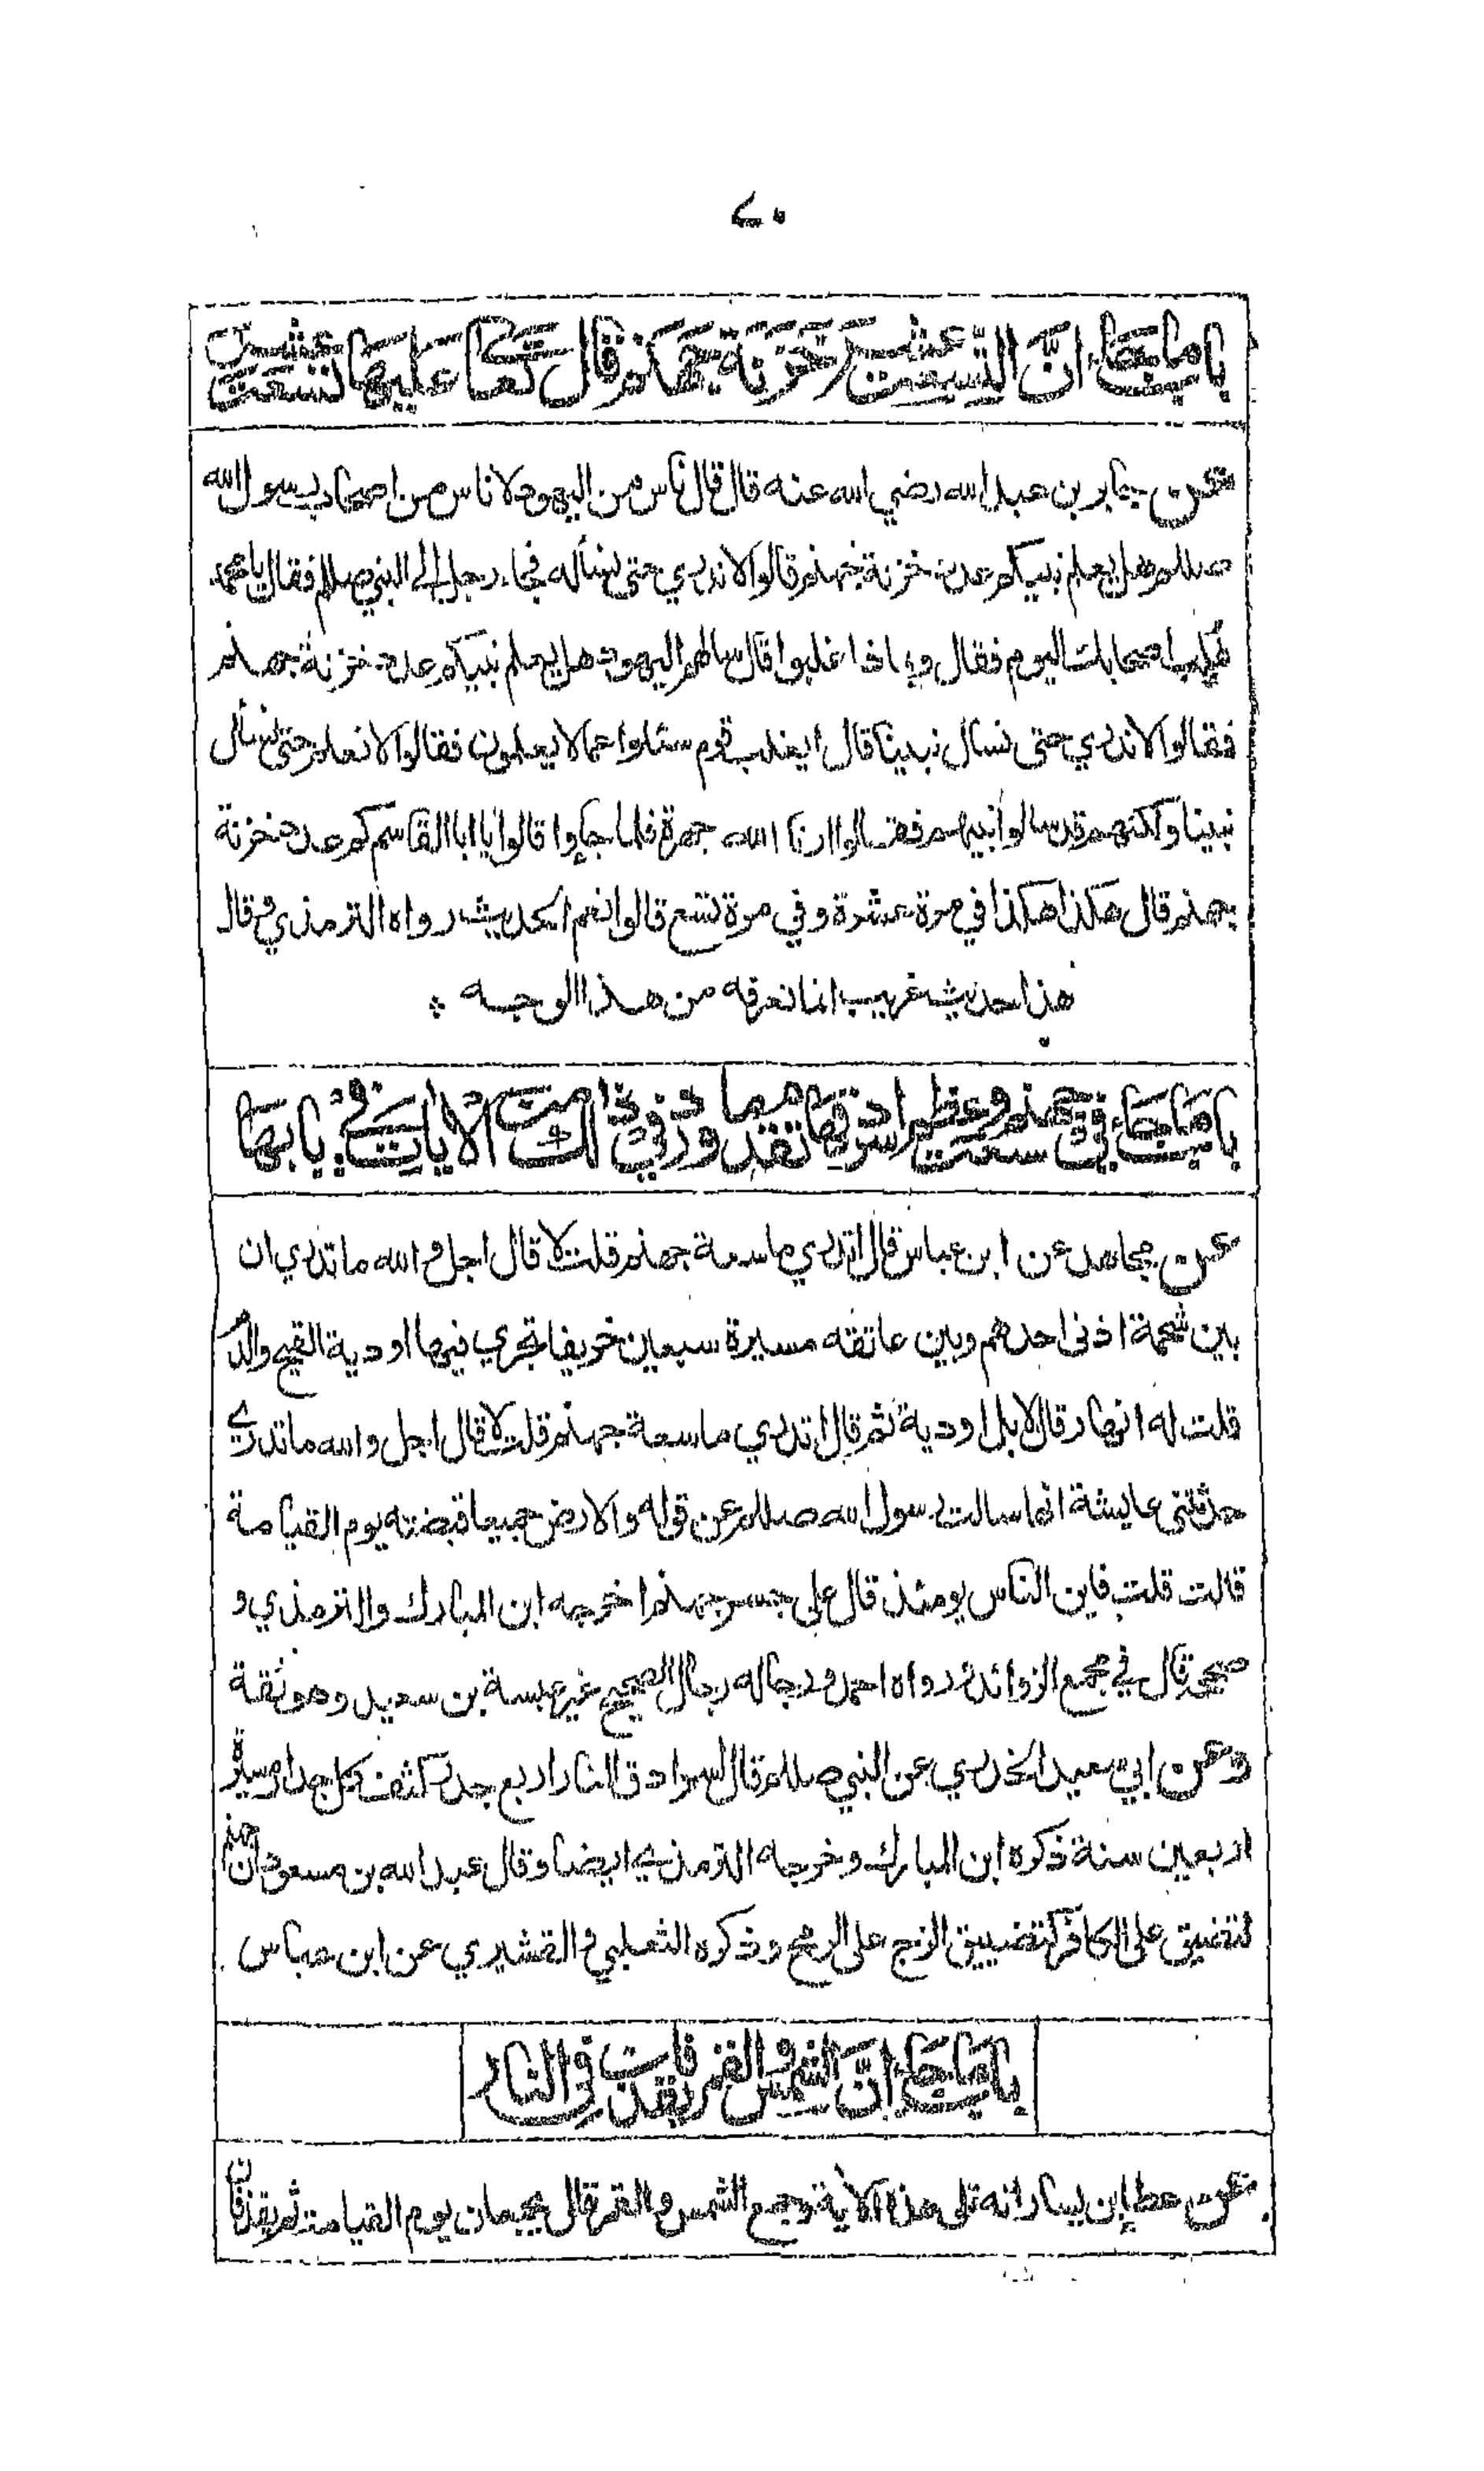 ٤٠
باب ما جاء ان التسعة عشر خزنة جهنم قال تعالى عليها تسعة عشر
عن جابر بن عبد الله رضي الله عنه قال قال ناس من اليهود لاناس من اصحاب رسول الله
صللم هل يعلم نبيكم عدد خزنة جهنم قالوا لا ندري حتى نسأله فجاء رجل الى النبي صللم فقال يا محمد
غلب اصحابك اليوم فقال وبماذا غلبوا قال سالهم اليهود هل يعلم نبيكم عدد خزنة جهنم
فقالوا لا ندري حتى نسال نبينا قال ايغلب قوم سئلوا عما لا يعلمون فقالوا لا نعلم حتى نسأل
نبينا ولكنهم قد سالوا نبيهم فقالوا ارنا الله جهرة فلما جاؤا قالوا يا ابا القاسم كم عدد خزنة
جهنم قال هكذا هكذا في مرة عشرة وفي مرة تسع قالوا نعم الحديث رواه الترمذي وقال
هذا حديث غريب انما نعرفه من هذا الوجه
باب ما جاء في سعة جهنم وعظم سرادقها مما تقدم وزد في ذلك من الايات في بابها
عن مجاهد عن ابن عباس قال اتدري ما سعة جهنم قلت لا قال اجل والله ما تدري ان
بين شحمة اذنى احدهم وبين عاتقه مسيرة سبعين خريفا تجري فيها اودية القيح والدم
قلت له انهار قال لا بل اودية ثم قال اتدري ما سعة جهنم قلت لا قال اجل والله ما تدري
حدثتني عايشة انها سالت رسول الله صللم عن قوله والارض جميعا قبضته يوم القيامة
قالت قلت فاين الناس يومئذ قال على جسر جهنم اخرجه ابن المبارك والترمذي و
صححه قال في مجمع الزوائد رواه احمد ورجاله رجال الصحيح غير عبسة بن سعيد وهو ثقة
وعن ابي سعيد الخدري عن النبي صللم قال لسرادق النار اربع جدر كثف كل جدار مسيرة
اربعين سنة ذكره ابن المبارك وخرجه الترمذي ايضا وقال عبد الله بن مسعود ان جهنم
لتضيق على الكافر كتضييق الزج على الرمح وذكره الثعلبي والقشيري عن ابن عباس
باب ما جاء ان الشمس والقمر يقذفان في النار
عن عطاء بن يسار انه تلى هذه الآية وجمع الشمس والقمر قال يجمعان يوم القيامة ثم يقذفان